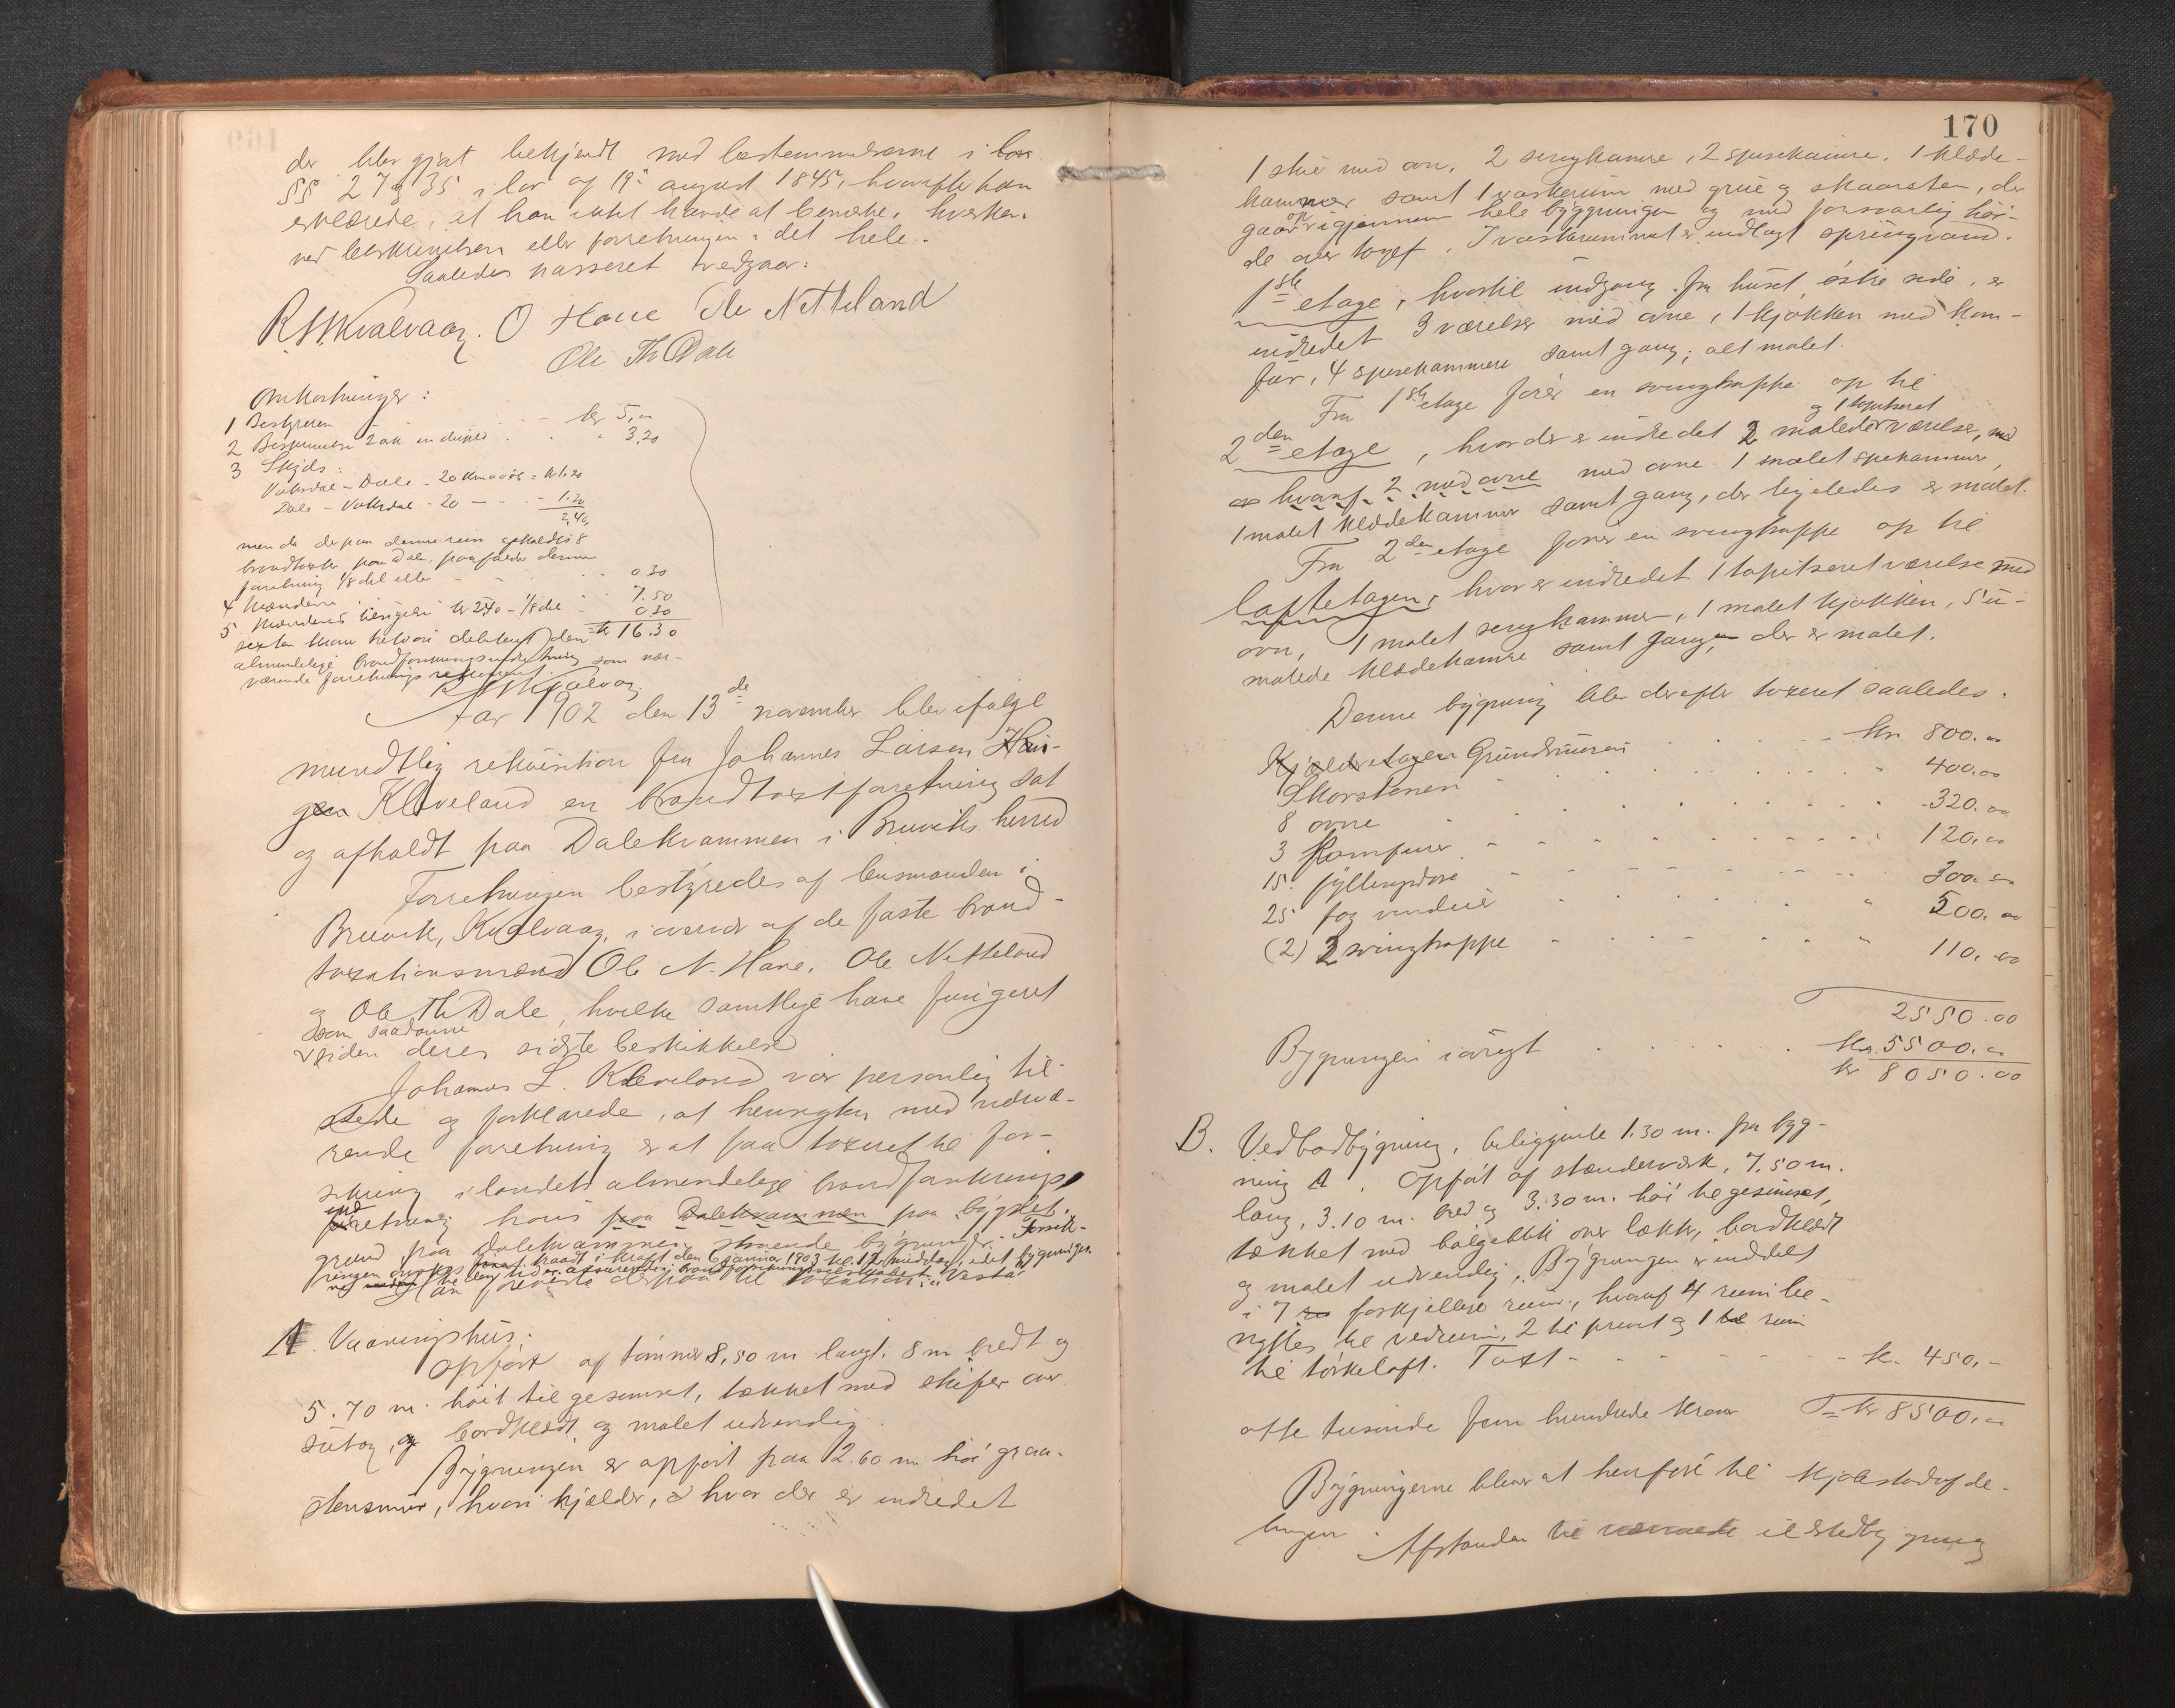 der blev gjort bekjendt med bestemmelserne i
§§ 27 og 35 i lov af 19. august 1845, hvorefter han
erklærede, at han intet havde at bemærke, hverken
ved beskrivelsen eller forretningen i det hele.
Saaledes passeret vedgaar:
R. Kvalvaag. O Hane Ole Netteland
Ole Th Dale
Omkostninger:
1 Bestyreren kr 5,00
2 Beskrivelse 2 ark 3,20
3 Skyds:
Vaksdal - Dale - 20 km = kr 1.20
Dale - Vaksdal - 20 — 1.20
2,40
men da der paa denne reise afholdtes 8
brandtaxter paa Dale, paafalder denne
forretning 1/8 del eller 0.30
4 Mændene 7.50
5 Mændenes kr 2.40 - 1/8 del 0.30
sexten kroner tretti øre kr 16.30
almindelige brandforsikringsindretning som nær-
værende forretnings
R Kvalvaag
Aar 1902 den 13de november blev ifølge
mundtlig rekvisition fra Johannes Larsen
Kleveland en brandtaxtforretning sat
og afholdt paa Dalekvammen i Bruviks herred
Forretningen bestyredes af lensmanden i
Bruvik, Kvalvaag, i overvær af de faste brand-
taxationsmænd Ole N. Hane, Ole Netteland
og Ole Th Dale, hvilke samtlige have fungeret
som saadanne
siden deres sidste beskikkelse
Johannes L. Kleveland var personlig til-
stede og forklarede, at hensigten med nærvæ-
rende forretning er at faa taxeret til for-
sikring i landets almindelige brandforsikrings
ind
retning hans paa Dalekvammen paa bygslet
grund paa Dalekvammen staaende bygninger. Forsik-
ringen traadt i kraft den 6 januar 1903 kl. 12 middag, idet bygninger-
ne
A. Vaaningshus:
Opført af tømmer 8,50 m langt, 8 m bredt og
5.70 m. høit til gesimset, tækket med skifer over
sutag, og bordklædt og malet udvendig.
Bygningen er opført paa 2.60 m høi graa-
stensmur, hvori kjælder, hvor der er indredet
170
1 stue med ovn, 2 sengkamre, 2 spisekamre, 1 klæde-
kammer samt 1 vaskerum med grue og skorsten, der
gaar op igjennem hele bygningen og med forsvarlig høi-
de over taget. I vaskerummet er indlagt springvand.
1ste etage, hvortil indgang fra huset østre side, er
indredet 3 værelser med ovne, 1 kjøkken med kom-
fur, 4 spisekammere samt gang; alt malet.
Fra 1ste etage fører en svingtrappe op til
og 1 tapetseret
2den etage, hvor der er indredet 2 malede værelser, med
hvoraf 2 med ovne med ovne 1 malet spisekammer,
1 malet klædekammer samt gang, der ligeledes er malet.
Fra 2den etage fører en svingtrappe op til
loftetagen, hvor er indredet 1 tapitseret værelse med
ovn, 1 malet sengkammer, 1 malet kjøkken, 5 u-
malede klædekamre samt gang, der er malet.
Denne bygning blev derefter taxeret saaledes:
Kjælderetagen Grundmuren kr. 800.00
Skorstenen 400.00
8 ovne 320.00
3 Komfurer 120.00
15 fyllingsdøre 300.00
25 fag vinduer 500.00
(2) 2 svingtrappe 110.00
2550.00
Bygningen iøvrigt kr. 5500.00
kr 8050.00
B. Vedbodbygning, beliggende 1.30 m. fra byg-
ning A. Opført af stænderværk, 7.50 m.
lang, 3.10 m. bred og 3.30 m. høi til gesimset,
tækket med bølgeblik over lækter, bordklædt
og malet udvendig. Bygningen er inddelt
i 7 forskjellige rum, hvoraf 4 rum be-
nyttes til vedrum, 2 til privet og 1 rum
til tørkeloft. Taxt kr. 450.-
otte tusinde fem hundrede kroner = kr 8500.00
Bygningerne bliver at henføre til kjøbstadafde-
lingen. Afstanden til ildstedbygning